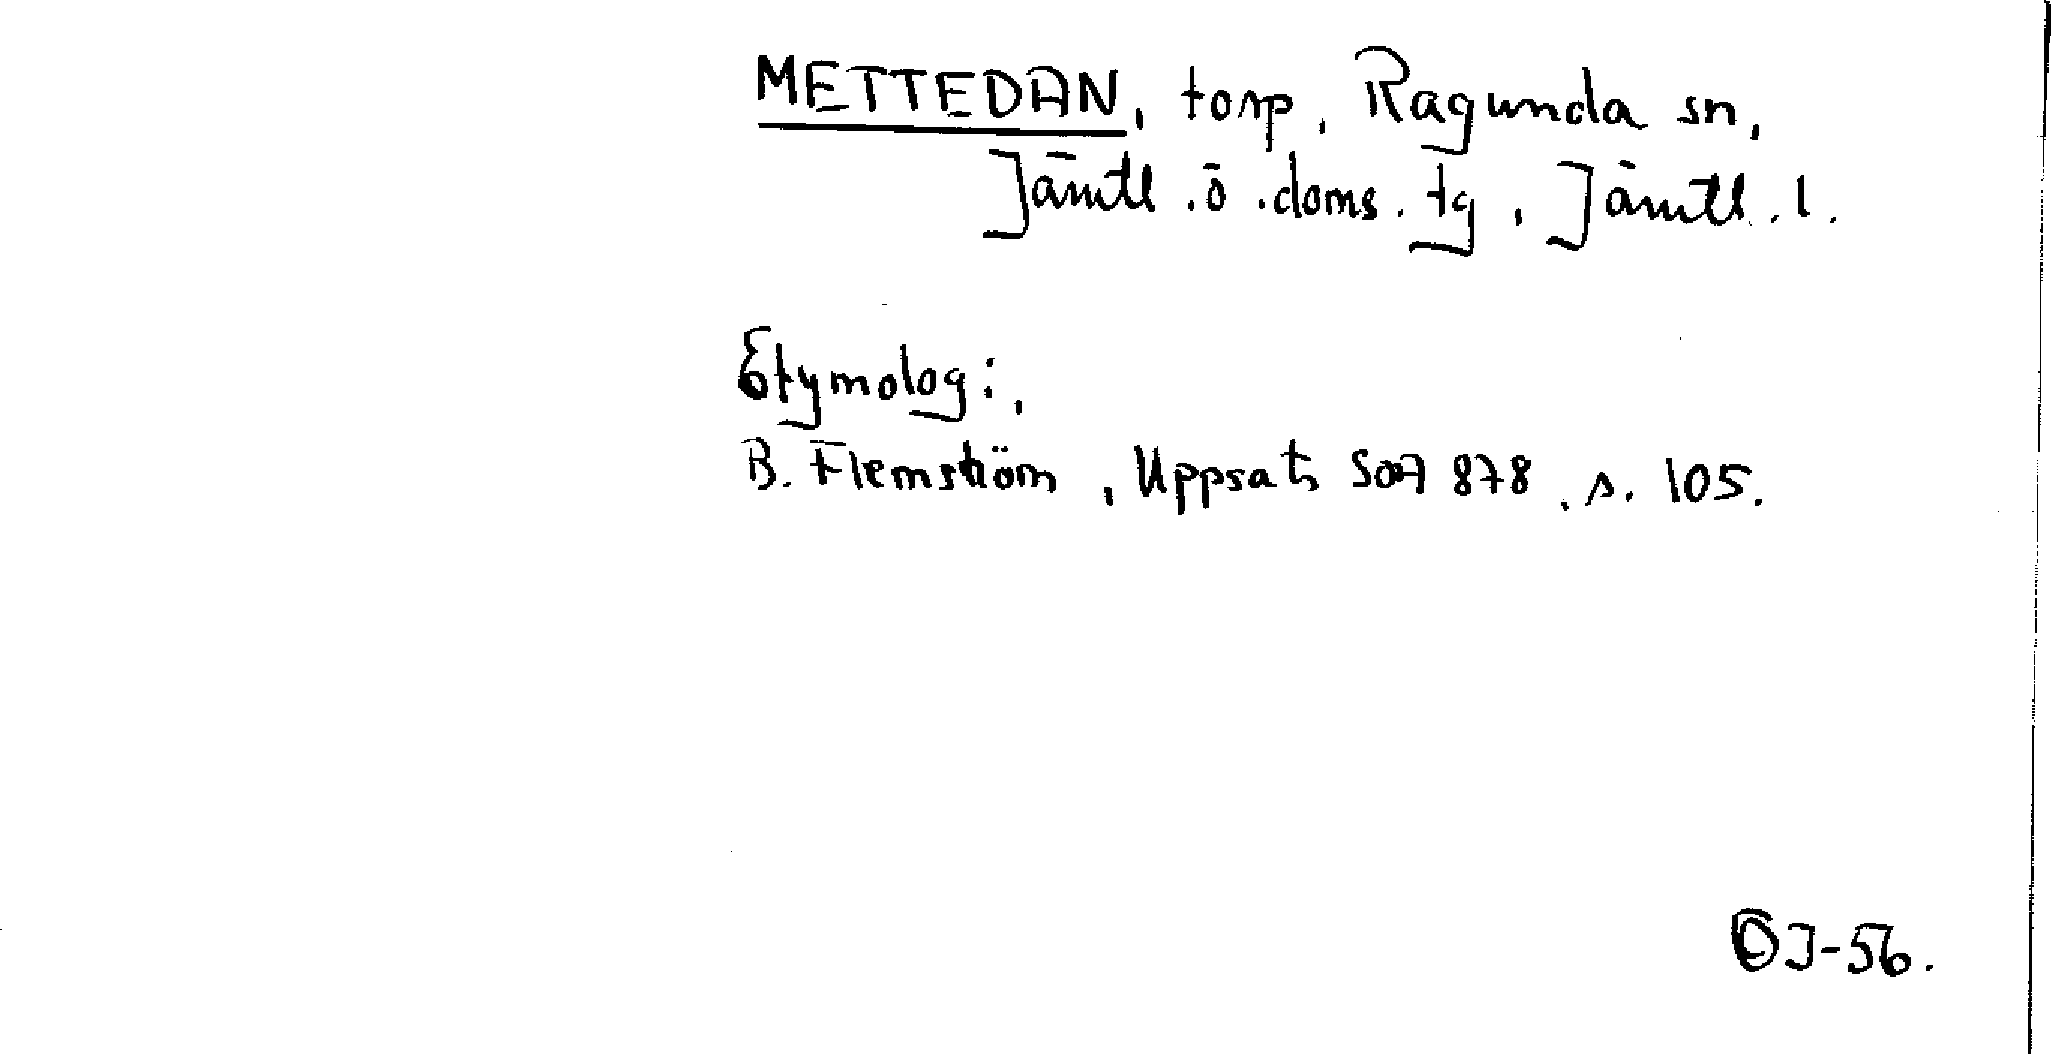 METTEDAN, torp, Ragunda sn,
Jämtl. ö. doms. tg, Jämtl. l.
Etymologi:,
B. Flemström, Uppsats SOA 878, s. 105.
OJ-56.